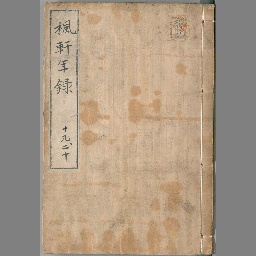 楓軒年録
十九之二十